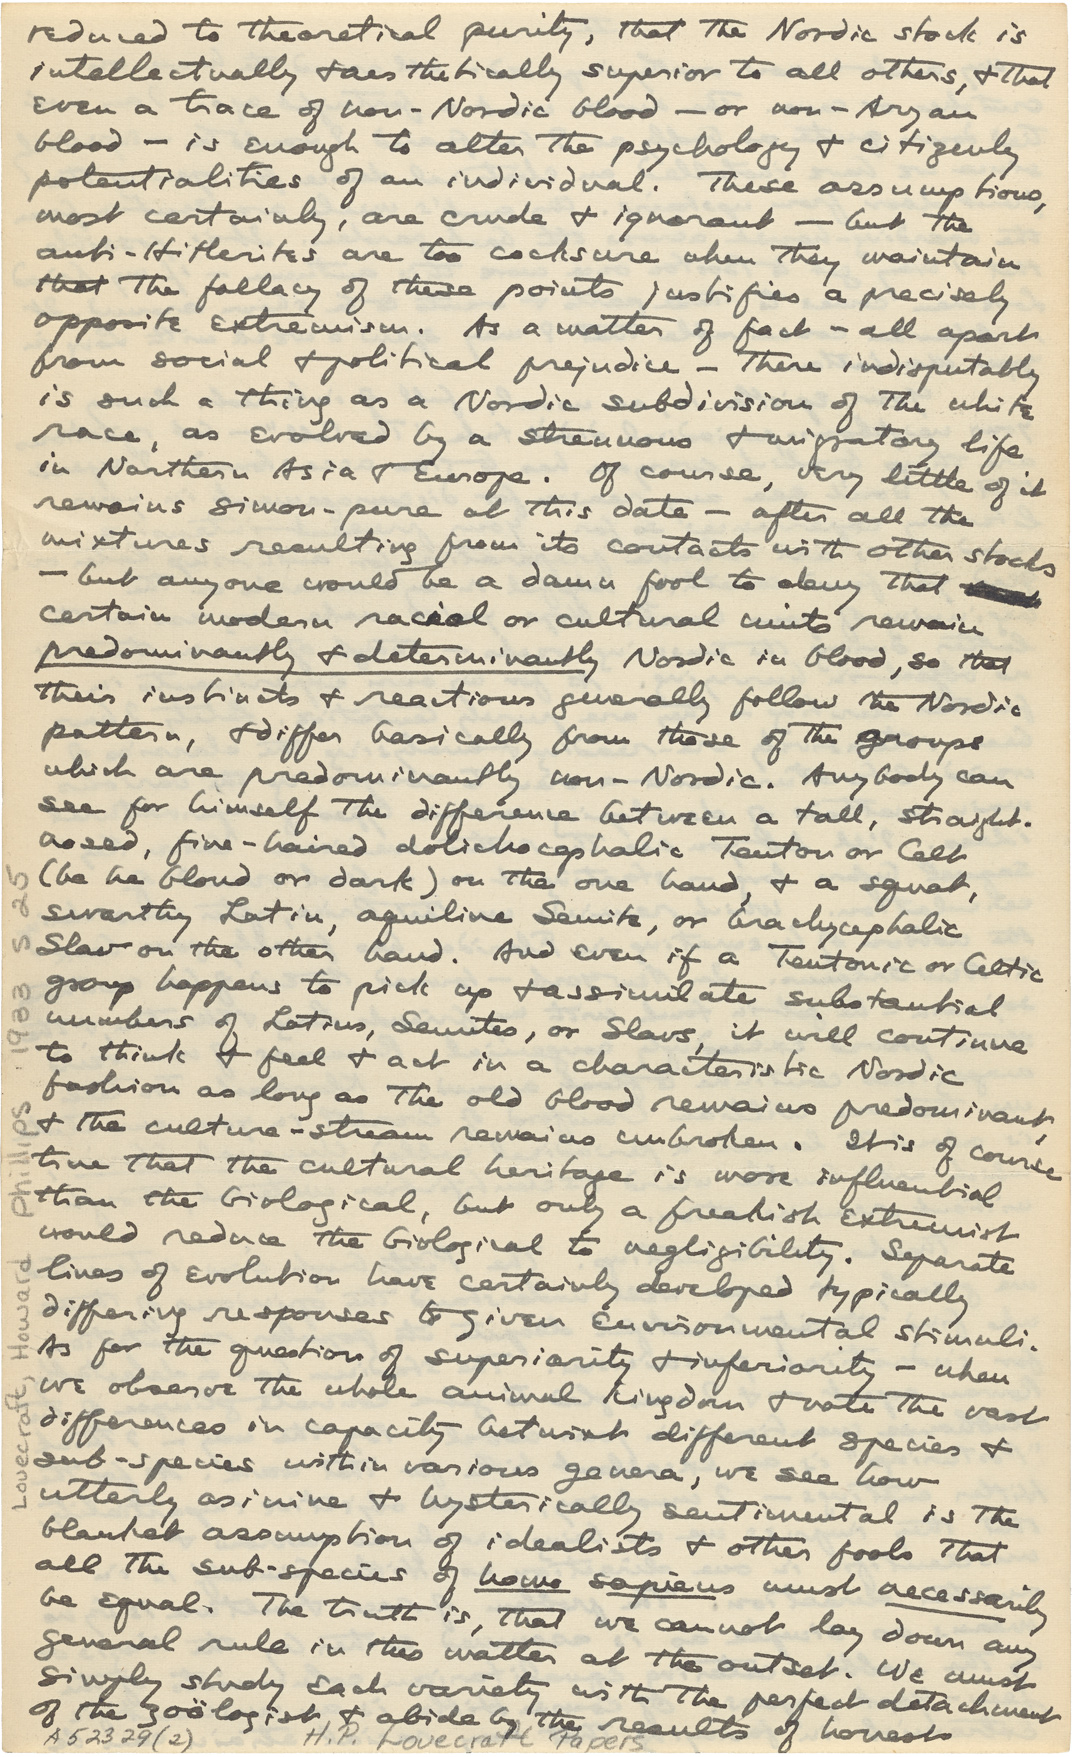 reduced to theoretical purity, that the Nordic stock is
intellectually & aesthetically superior to all others, & that
even a trace of non-Nordic blood — or non-Aryan
blood — is enough to alter the psychology & citizenly
potentialities of an individual. These assumptions,
most certainly, are crude & ignorant — but the
anti-Hitlerites are too cocksure when they maintain
that the fallacy of these points justifies a precisely
opposite extremism. As a matter of fact — all apart
from social & political prejudice — there indisputably
is such a thing as a Nordic subdivision of the white
race, as evolved by a strenuous & migratory life
in Northern Asia & Europe. Of course, very little of it
remains simon-pure at this date — after all the
mixtures resulting from its contacts with other stocks
— but anyone would be a damn fool to deny that
certain modern racial or cultural units remain
predominantly & determinantly Nordic in blood, so that
their instincts & reactions generally follow the Nordic
pattern, & differ basically from those of the groups
which are predominantly non-Nordic. Anybody can
see for himself the difference between a tall, straight-
nosed, fine-haired dolichocephalic Teuton or Celt
(be he blond or dark) on the one hand, & a squat,
swarthy Latin, aquiline Semite, or brachycephalic
Slav on the other hand. And even if a Teutonic or Celtic
group happens to pick up & assimilate substantial
numbers of Latins, Semites, or Slavs, it will continue
to think & feel & act in a characteristic Nordic
fashion as long as the old blood remains predominant,
& the culture-stream remains unbroken. It is of course
true that the cultural heritage is more influential
than the biological, but only a freakish extremist
would reduce the biological to negligibility. Separate
lines of evolution have certainly developed typically
differing responses to given environmental stimuli.
As for the question of superiority & inferiority — when
we observe the whole animal kingdom & note the vast
differences in capacity betwixt different species &
sub-species within various genera, we see how
utterly asinine & hysterically sentimental is the
blanket assumption of idealists & other fools that
all the sub-species of homo sapiens must necessarily
be equal. The truth is, that we cannot lay down any
general rule in this matter at the outset. We must
simply study each variety with the perfect detachment
of the zoölogist, & abide by the results of honest
A52329(2) H.P. Lovecraft Papers
Lovecraft, Howard Phillips 1933 S 25